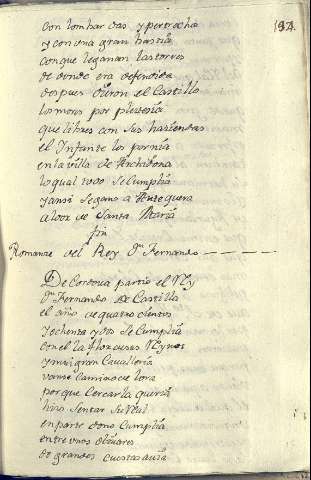 184.
con lombardas y pertrechos
y con una gran bastia
con que llegauan las torres
de donde era defendida
despues dieron el Castillo
los moros por pleitesia
que libres con sus haziendas
el Infante los pornia
en la villa de Archidona
lo qual todo se Cumplia
y ansi se gano a Antequera
a loor de Santa Maria
fin
Romance del Rey Dn Fernando
De Cordoua partio el Rey
Dn Fernando de Castilla
el año de quatrocientos
y ochenta y dos se Cumplia
con el la flor de sus Reynos
y mui gran Caualleria
vanse Camino de Lora
porque Cercarla queria
hizo sentar su Real
en parte do no Cumplia
entre unos oliuares
de grandes cuestas auia